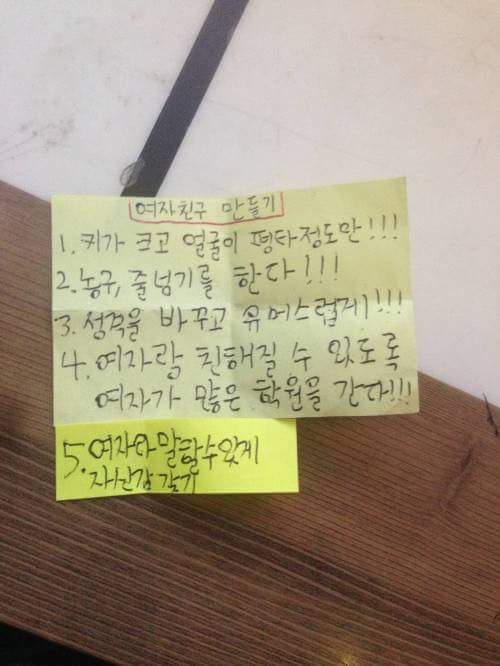 여자친구 만들기
1. 키가 크고 얼굴이 평타정도만!!!
2. 농구, 줄넘기를 한다!!!
3. 성격을 바꾸고 유머스럽게!!!
4. 여자랑 친해질 수 있도록
여자가 많은 학원을 간다!!!
5. 여자와 말할수있게
자신감 갖기